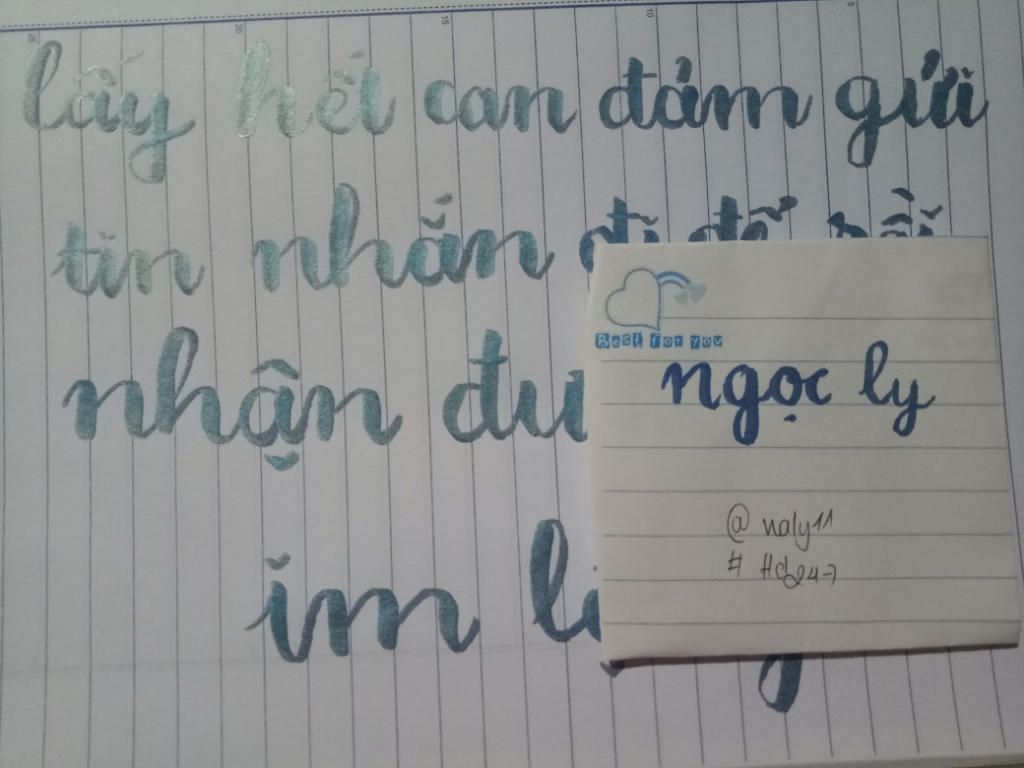 lấy hết can đảm gửi
tin nhắn đi để rồi
nhận đư
im l
Best for you
ngọc ly
@ naly11